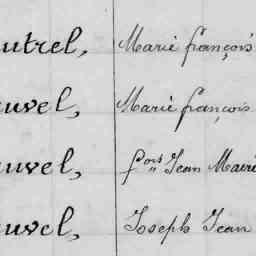 utrel, Marie françois
uvel, Marie françois
uvel, fçois Jean Marie
uvel, Joseph Jean